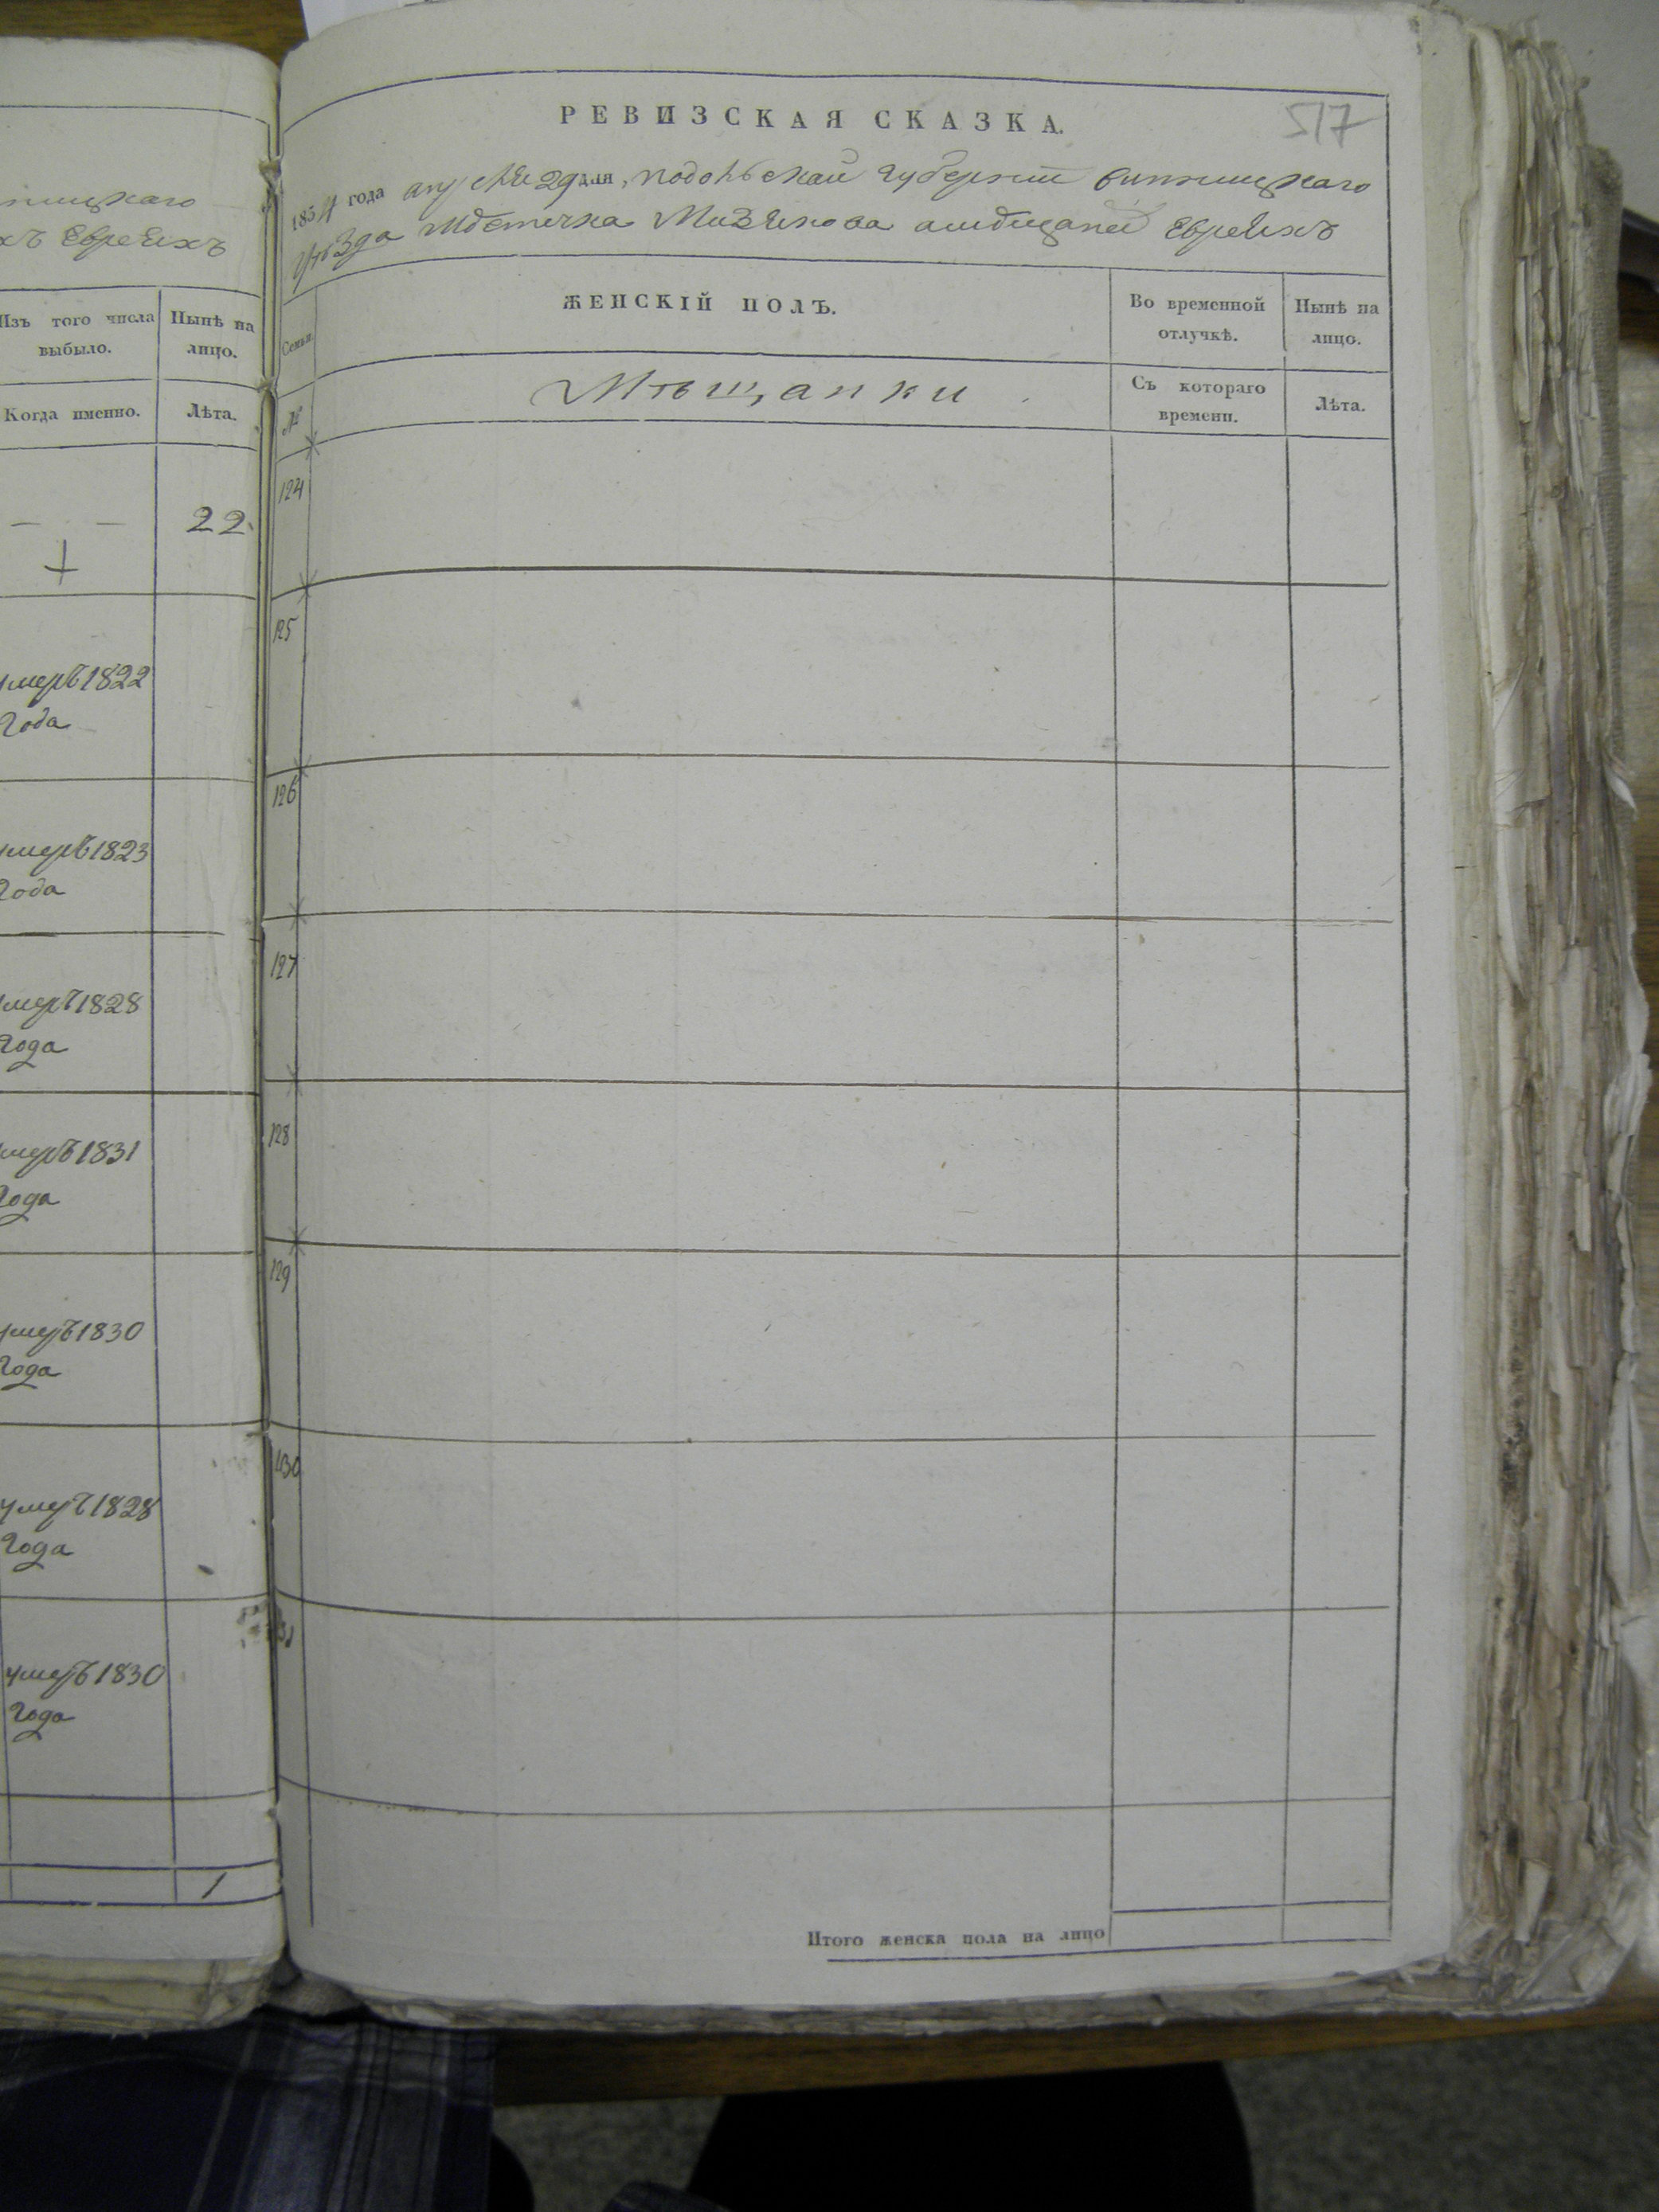 ницкаго
хъ Евреихъ
Изъ того числа выбыло.
Нынѣ на лицо.
Когда именно.
Лѣта.
— — 22
умеръ 1822
Года
умеръ 1823
Года
умеръ 1828
Года
умеръ 1831
Года
умеръ 1830
Года
умеръ 1828
Года
умеръ 1830
Года
1
517
РЕВИЗСКАЯ СКАЗКА.
1834 года апреля 29 дня, подольской Губерніи винницкаго
уѣзда Мѣстечка Мизякова Евреихъ
Семьи.
ЖЕНСКІЙ ПОЛЪ.
Во временной отлучкѣ.
Нынѣ на лицо.
№
Мѣщанки
Съ котораго времени.
Лѣта.
124
125
126
127
128
129
130
131
Итого женска пола на лицо